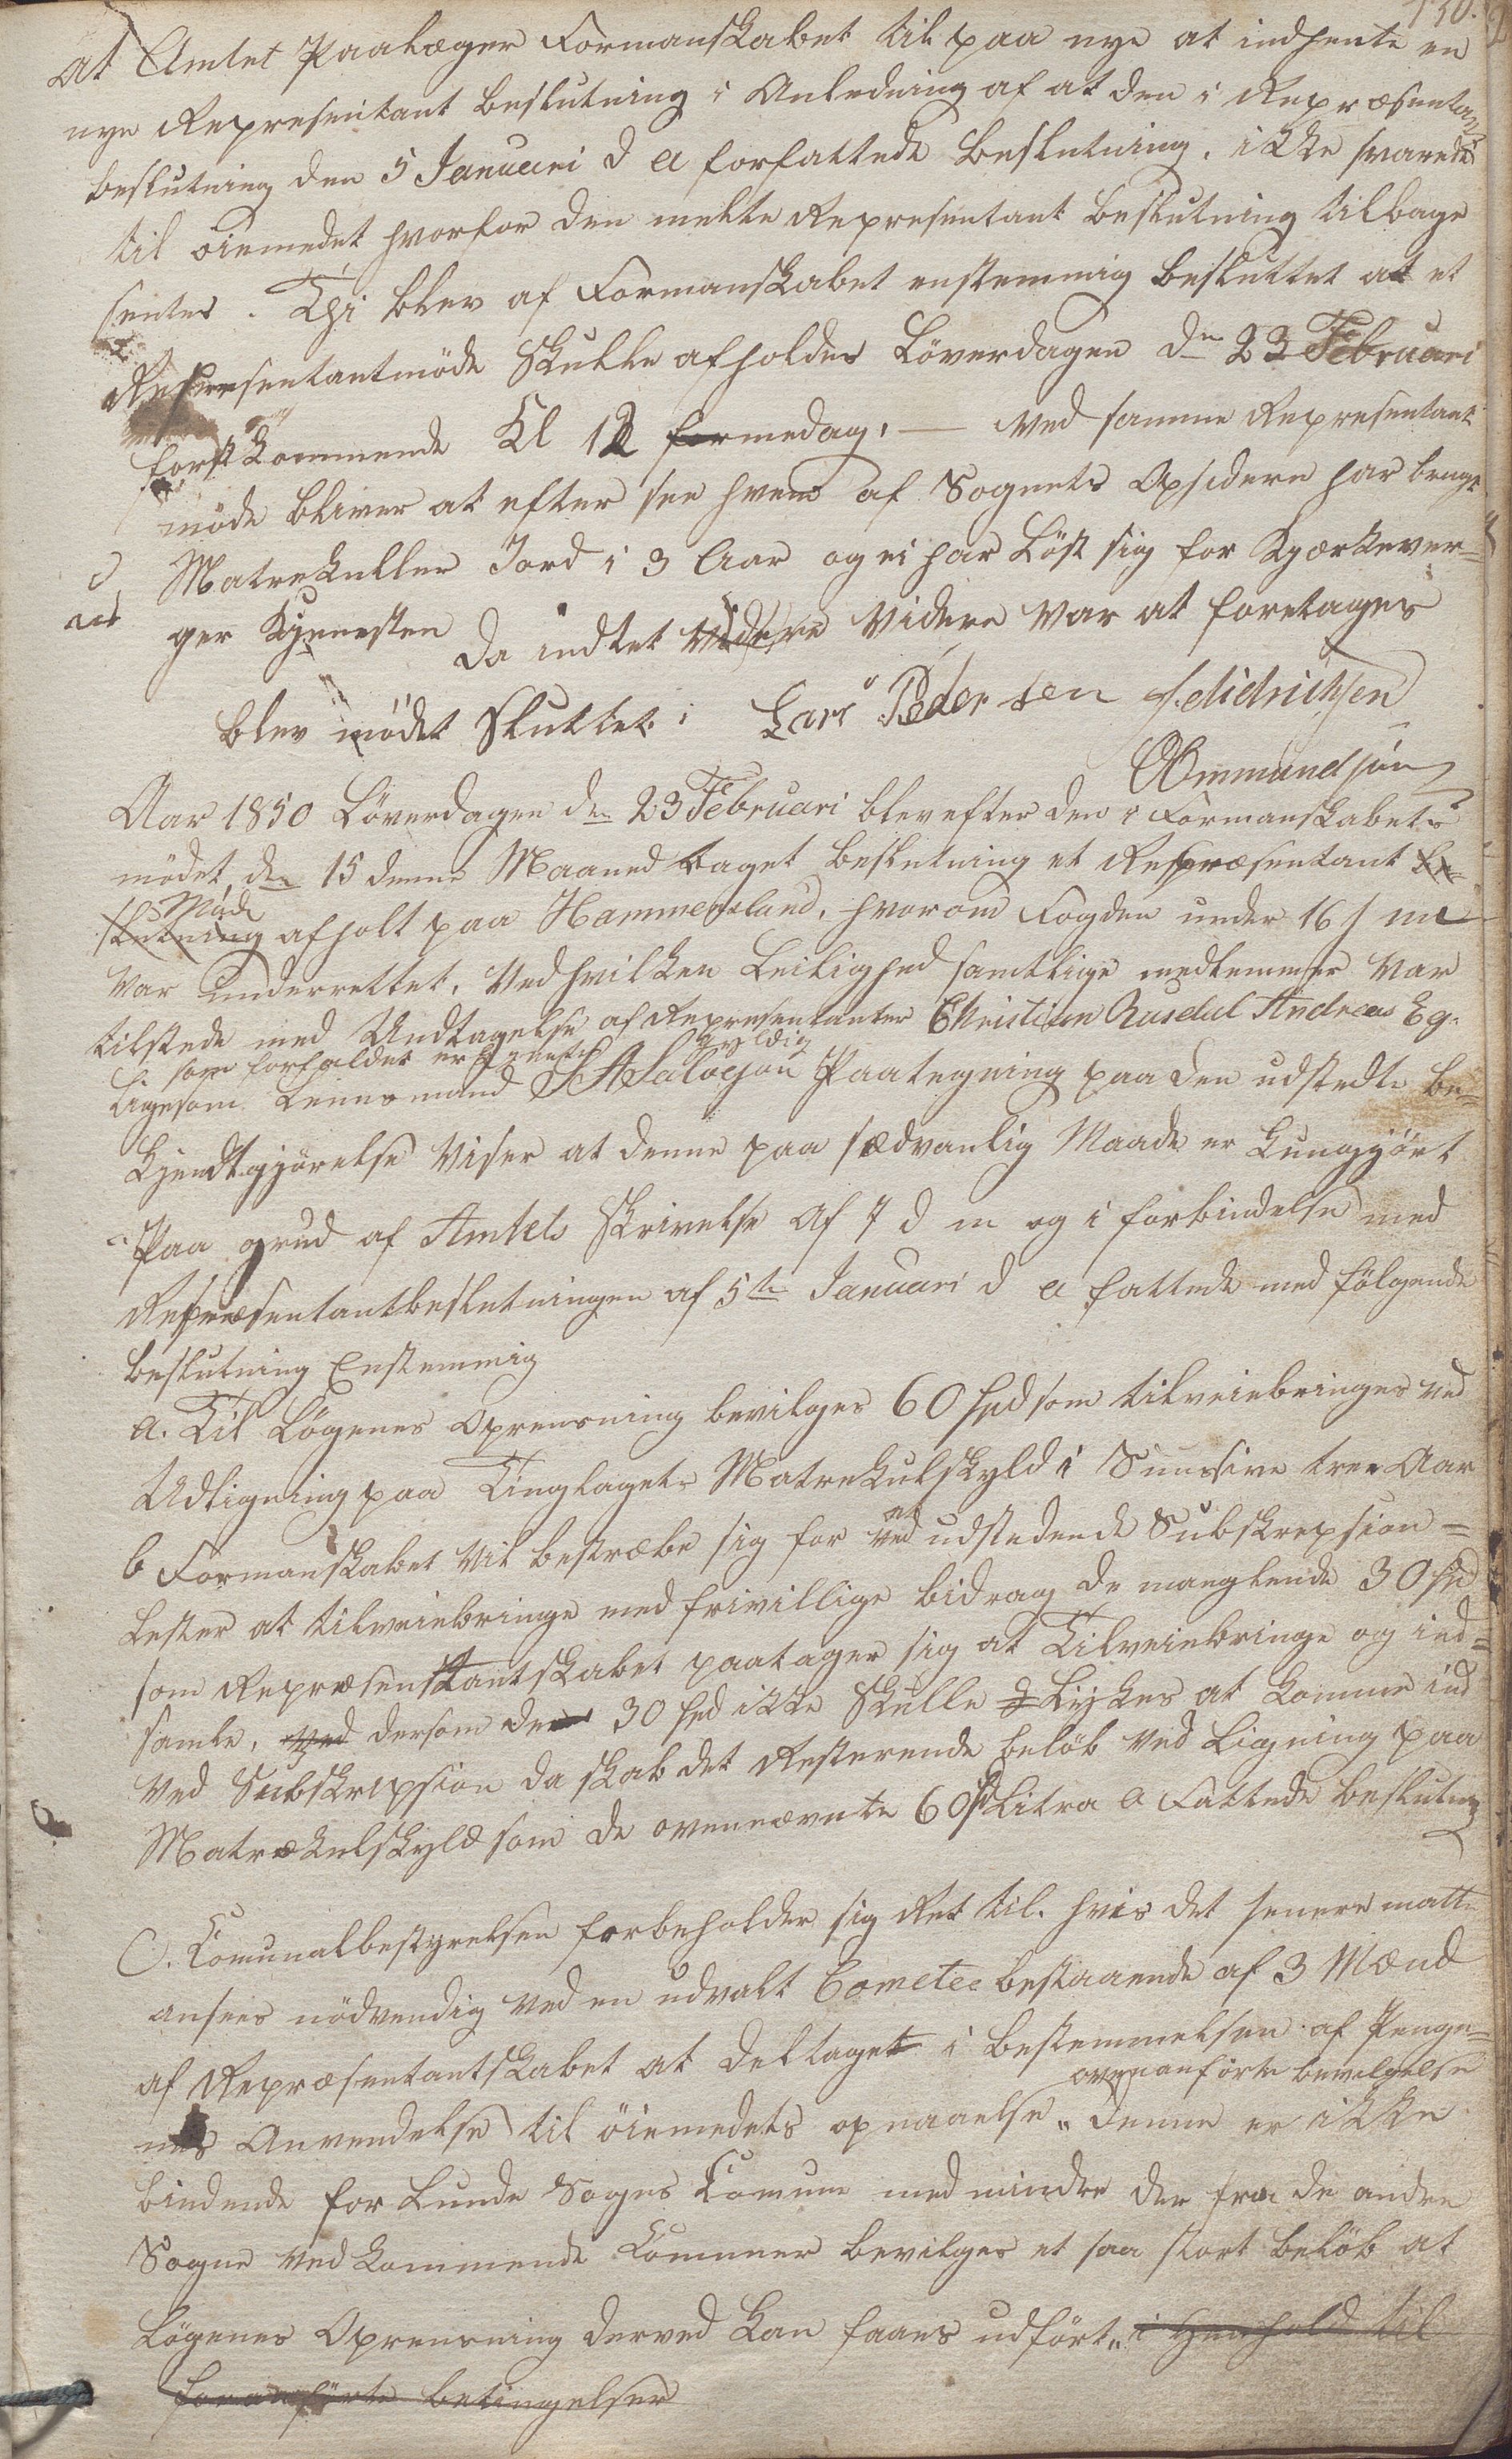 130.
At Amtet Paalæger Formanskabet til paa nye at indhente en
nye Representant beslutning i Anledning af at den i Repræsentant
beslutning den 5 Januari d a forfattede Beslutning, ikke svarede
til öiemedet hvorfor den melte Representant beslutning tilbage
sentes. Thi blev af Formanskabet enstemmig besluttet at et
Representantmöde Skulle afholdes Löverdagen dn 23 Februari
först kommende Kl 12 formedag. — Ved samme Representant
möde bliver at efter see hvem af Sognets Opsidere har brugt
Matrekuller Jord i 3 Aar og ei har Löst sig for Kjærkever=
ger Tjenesten Da indtet Videre Videre Var at foretages
blev mödet Sluttet. Lars Pedersen Fedidrichsen
Ommundsen
Aar 1850 Löverdagen den 23 Februari blev efter den i Formanskabets
mödet den 15 denne Maaned taget beslutning et Repræsentant Be=
Möde
slutning afholt paa Hammersland, hvorom Fogden under 16 f m
Var underrettet. Ved hvilken Leilighed samtlige medlemmer Var
tilstede med Undtagelse af Representanter Christian Rusdal Andreas Eg.
som forfaldet er gyldig
ligesom Lennsmand Salvesen Paategning paa den udstedte be=
kjendtgjörelse Viser at denne paa sædvanlig Maade er kungjört
Paa grund af Amtets Skrivelse af 7 d m og i forbindelse med
Repræsentantbeslutningen af 5te Januari d a fattede med fölgende
beslutning Enstemmig
a. Til Lögenes Oprensning bevilges 60 spd som tilveiebringes ved
Udligning paa Tinglagets Matrekulskyld i Suucsive tree Aar
at
b Formanskabet vil bestræbe sig for ved udstedende Subskrepsion=
Lester at tilveiebringe med frivillige bidrag de manglende 30 spd
som Repræsentantskabet paatager sig at Tilveiebringe og ind=
samle, Ved dersom de 30 spd ikke Skulle Lykkes at komme ind
Ved Subskripsion da skal det Resterende belöb Ved Ligning paa
Matrækulskyld som de ovennævnte 60 spd Litra a Fattede beslutning
C. Comunalbestyrelsen forbeholder sig Ret til. hvis det senere matte
ansees nödvendig Ved en udvalt Cometee bestaaende af 3 Mænd
af Repræsentantskabet at deltaget i bestemmelsen af Penge=
ovenanförte bevilgelse
nes Anvendelse til öiemedets opnaaelse„ denne er ikke
bindende for Lunde Sogns Comune med mindre der fra de andre
Sogne Vedkommende Comuner bevilges et saa stort belöb at
Lögenes Oprensning derved Kan faaes udfört„ i Henhold til
foranförte betingelser